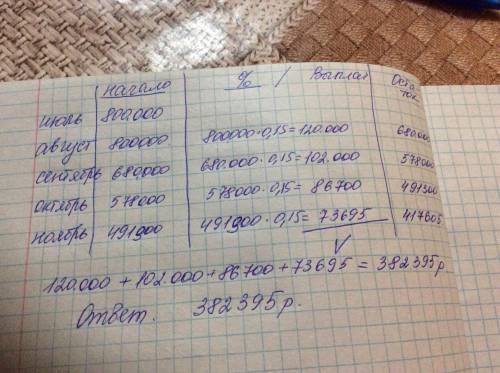 начало % / Выплат Оста-
ток
июль 800.000
август 800000 800000·0,15=120.000 680.000
сентябрь 680.000 680.000·0,15=102.000 578000
октябрь 578000 578000·0,15=86700 491300
ноябрь 491900 491900·0,15=73695 417605
120.000+102.000+86700+73695=382395р.
Ответ. 382395р.